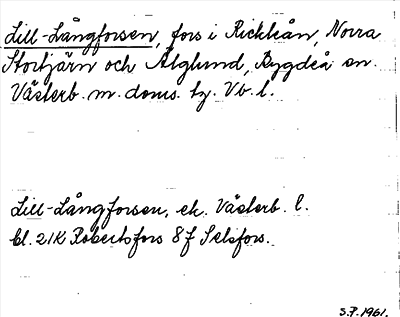 Lill-Långforsen, fors i Rickleån, Norra
Stortjärn och Älglund, Bygdeå sn.
Västerb. m. doms. tg. Vb. l.
Lill-Långforsen, ek. Västerb. l.
bl. 21K Robertsfors 8f Selsfors.
3.7.1961.